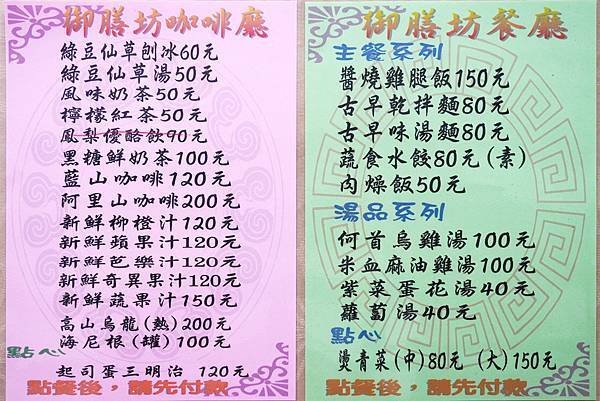 御膳坊咖啡廳
綠豆仙草刨冰60元
綠豆仙草湯50元
風味奶茶50元
檸檬紅茶50元
鳳梨優酪飲90元
黑糖鮮奶茶100元
藍山咖啡120元
阿里山咖啡200元
新鮮柳橙汁120元
新鮮蘋果汁120元
新鮮芭樂汁120元
新鮮奇異果汁120元
新鮮蔬果汁150元
高山烏龍(熱)200元
海尼根(罐)100元
點心
起司蛋三明治 120元
點餐後，請先付款
御膳坊餐廳
主餐系列
醬燒雞腿飯150元
古早乾拌麵80元
古早味湯麵80元
蔬食水餃80元(素)
肉燥飯50元
湯品系列
何首烏雞湯100元
米血麻油雞湯100元
紫菜蛋花湯40元
蘿蔔湯40元
點心
燙青菜(中)80元 (大)150元
點餐後，請先付款